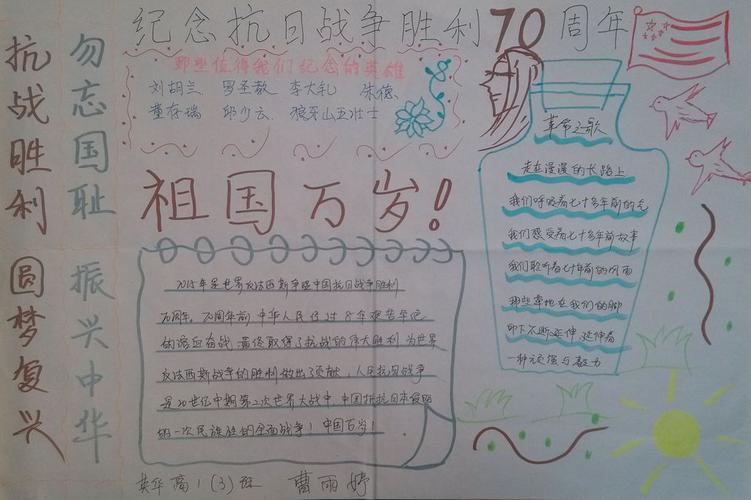 纪念抗日战争胜利70周年
抗战胜利 圆梦复兴
勿忘国耻 振兴中华
那些值得我们纪念的英雄
刘胡兰 罗圣教 李大钊 朱德
董存瑞 邱少云 狼牙山五壮士
祖国万岁！
2015年是世界反法西斯争暨中国抗日战争胜利
70周年，70周年前中华人民经过8年艰苦卓绝
的浴血奋战 最终取得了抗战的伟大胜利 为世界
反法西斯战争的胜利做出了贡献，人民抗日战争
是20世纪中期第二次世界大战中，中国抵抗日本侵略
的一次民族性的全面战争！中国万岁！
革命之歌
走在漫漫的长路上
我们呼吸着七十多年前的
我们想受着七十多年前故事
我们聆听着七十年前的
那些草地在我们的脚
印下不断延伸 延伸着
一种顽强与毅力
英华高1（3）班 曹雨婷